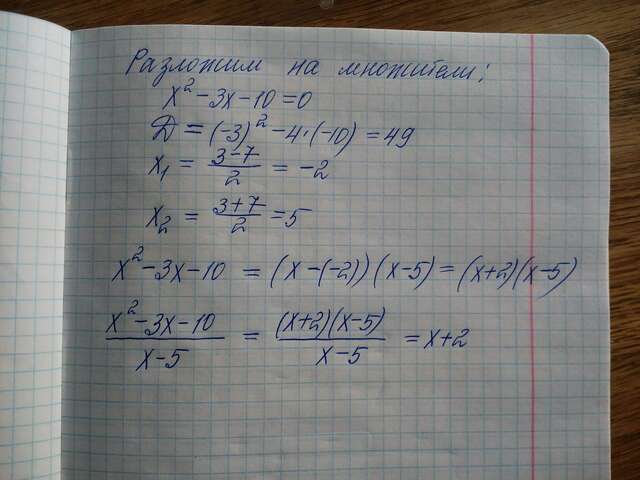 Разложим на множители:
x² - 3x - 10 = 0
D = (-3)² - 4·(-10) = 49
x₁ = (3-7)/2 = -2
x₂ = (3+7)/2 = 5
x² - 3x - 10 = (x - (-2))(x - 5) = (x+2)(x-5)
(x² - 3x - 10)/(x-5) = ((x+2)(x-5))/(x-5) = x+2